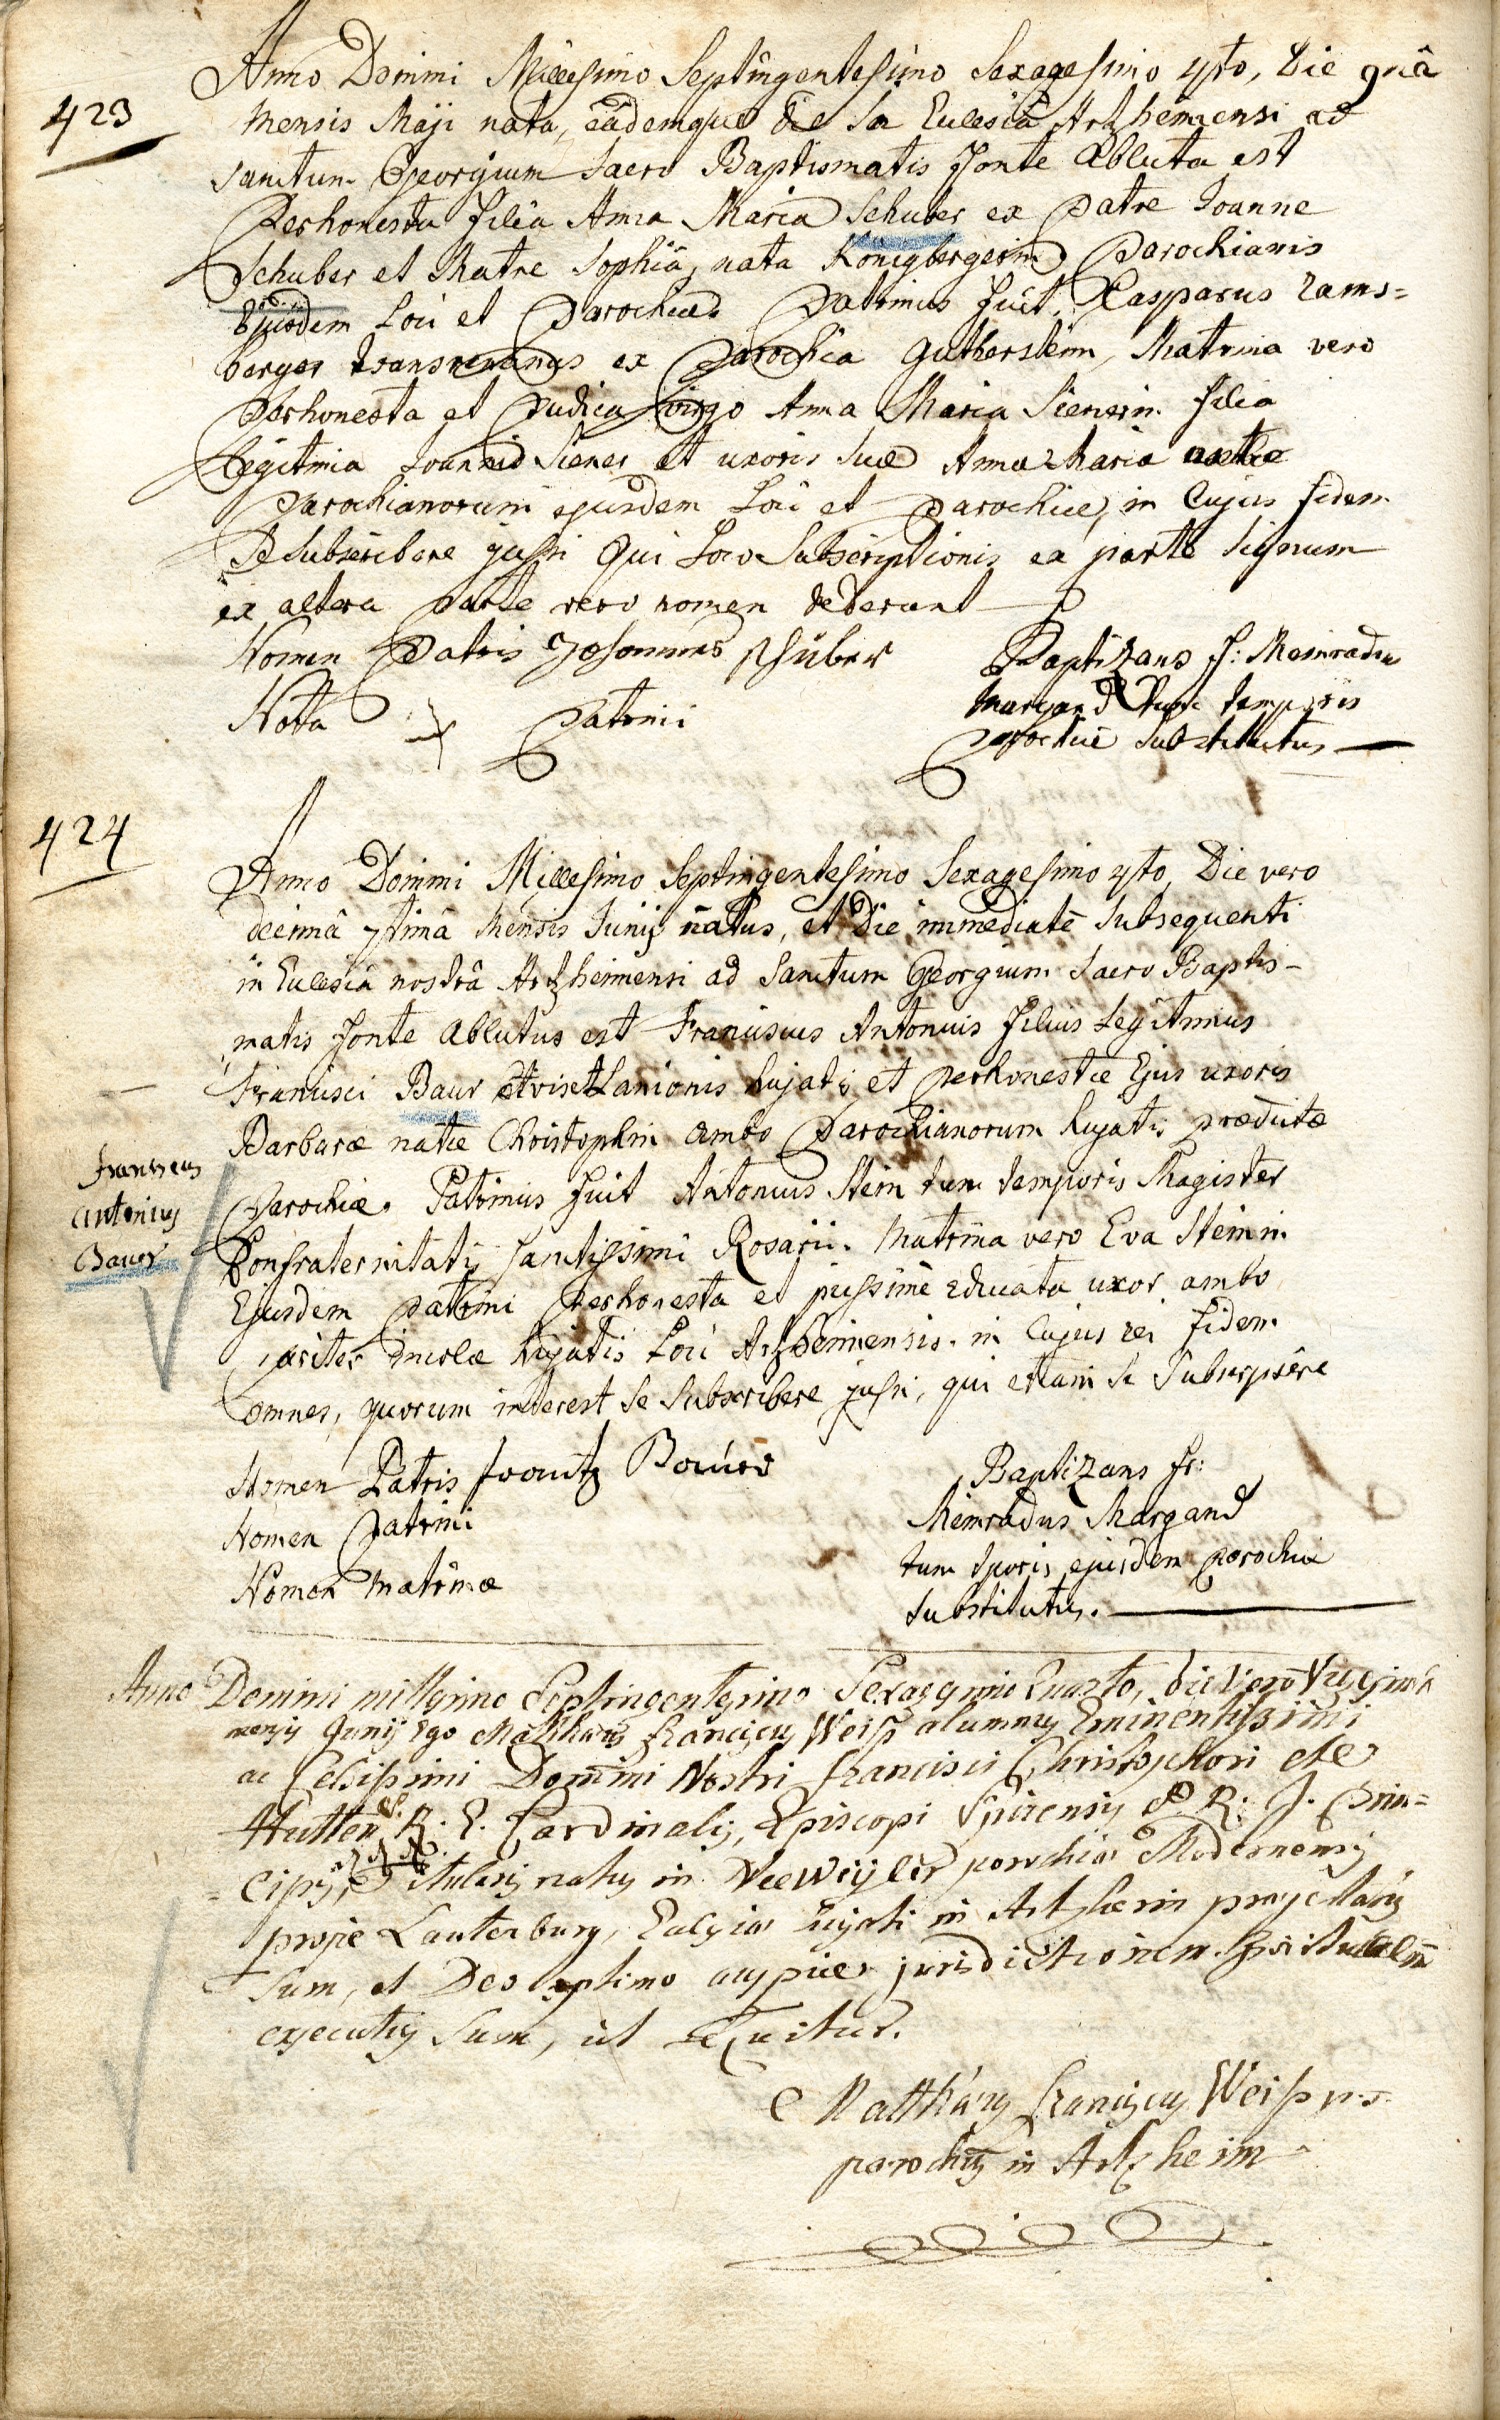 423
Anno Domini Millesimo Septingentesimo Sexagesimo 4to, Die 9nâ
Mensis Maji nata, eâdemque die In Ecclesiâ Artzheimensi ad
Sanctum Georgium Sacro Baptismatis Fonte Abluta est
Perhonesta Filia Anna Maria Schuber ex Patre Joanne
Schuber et Matre Sophiâ, nata Königbergerin Parochianis
Ejusdem Loci et Parochiae. Patrinus fuit Casparus Rams=
berger transrenanus ex Parochia Gutherstein, Matrina vero
Perhonesta et Pudica virgo Anna Maria Sienerin filia
Legitmia Joannis Siener et uxoris Suae Anna Maria
Parochianorum ejusdem Loci et Parochiae, in Cujus fidem
Se Subscribere jussi Qui Loco Subscriptionis ex parte Signum
ex altera Parte vero nomen dederunt
Nomen Patris Johannes Schuber
Nota Patrini
Baptizans F: Meinradus
Margand tunc temporis
Parochiae Substitutus
424
Anno Domini Millesimo Septingentesimo Sexagesimo 4to, Die vero
decimâ 7timâ Mensis Junij natus, et Die immediatè Subsequenti
in Ecclesiâ nostrâ Artzheimensi ad Sanctum Georgium Sacro Baptis-
matis Fonte Ablutus est Franciscus Antonius Filius Legitimus
Francisci Baur Lanionis hujatis et Perhonestae Ejus uxoris
Barbarae natae Christophin ambo Parochianorum hujatis praedictae
Parochiae. Patrinus Fuit Antonius Stein tum temporis Magister
Confraternitatis Sanctissimi Rosarii. Matrina vero Eva Steinin
Ejusdem Patrini Perhonesta et piissimè Educata uxor ambo
pariter incolae hujatis Loci Artzheimensis. in Cujus rei Fidem
omnes, quorum interest Se Subscribere jussi, qui etiam Se Subscripsêre
Franciscus
Antonius
Bauer
Nomen Patris Frantz Bauer
Nomen Patrini
Nomen Matrinae
Baptizans Fr:
Meinradus Margand
tum tporis ejusdem Parochiae
Substitutus.
Anno Domini millesimo Septingentesimo Sexagesimo Quarto, die vero Vigesima
mensis Junij Ego Matthaeus Franciscus Weiss alumnus Eminentissimi
ac Celsissimi Domini Nostri Francisci Christophori de
Hutten S. R. E. Cardinalis, Episcopi Spirensis S. R. J. Prin=
=cipis, natus in Neeweyler parochia Modernensis
prope Lauterburg, Ecclesiae hujati in Artzheim praefectus
Sum, et Deo optimo auspice jurisdictionem Spiritualem
executus Sum, ut Sequitur.
Matthaeus Franciscus Weiss
parochus in Artzheim